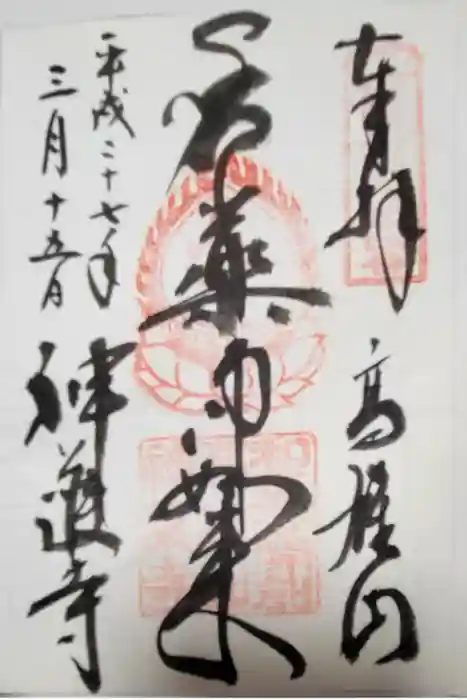 奉拝 高雄山
薬師如来
平成二十七年
三月十五日 神護寺